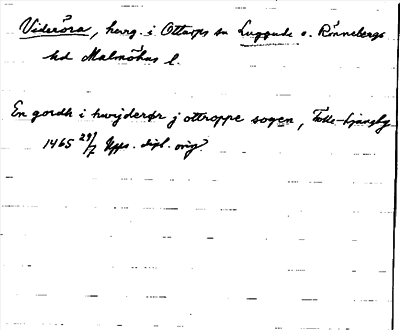 Videröra, herrg. i Ottarps sn Luggude o. Rönnebergs
hd Malmöhus l.
En gordh i hwijderør j ottroppe sogen, Tokke-
1465 29/7 Upps. dipl. orig.